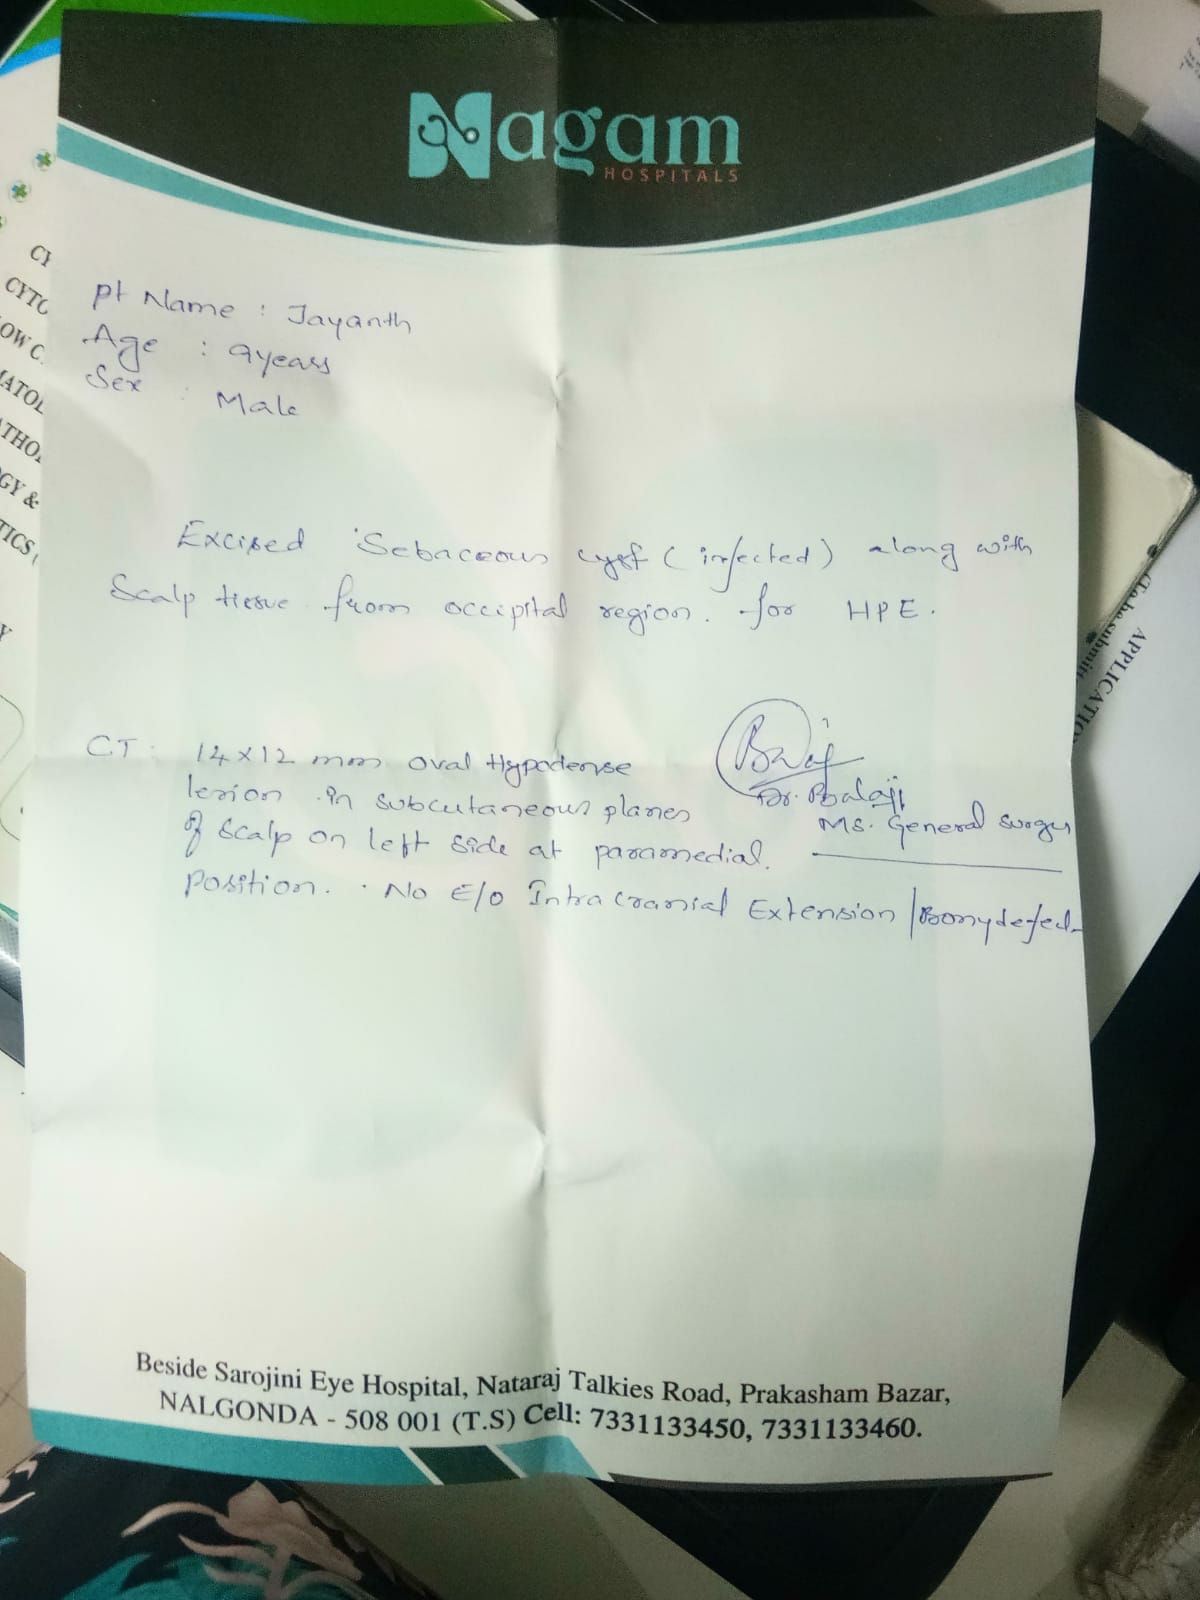 Nagam
HOSPITALS
Pt Name : Jayanth
Age : 9years
Sex : Male
Excised Sebaceous cyst (infected) along with
Scalp tissue from occipital region. for HPE.
CT : 14x12 mm oval Hypodense
lesion in subcutaneous planes
of scalp on left side at paramedial
position. No E/o Intracranial Extension/Bonydefect
Dr. Balaji
MS. General surgery
Beside Sarojini Eye Hospital, Nataraj Talkies Road, Prakasham Bazar,
NALGONDA - 508 001 (T.S) Cell: 7331133450, 7331133460.
CYTO
OW C
ATOL
THO
GY &
TICS
(To be submit
APPLICATIO